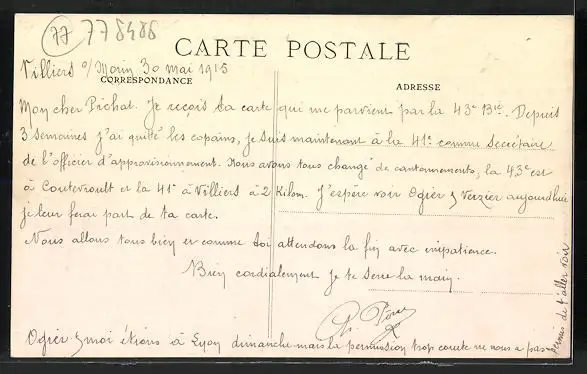 77 778486
CARTE POSTALE
Villiers s/Morin 30 mai 1915
CORRESPONDANCE
ADRESSE
Mon cher Pichat. Je reçois ta carte qui me parvient par la 43e Bie. Depuis
3 semaines j'ai quitté les copains, je suis maintenant à la 41e comme secrétaire
de l'officier d'approvisionnement. Nous avons tous changé de cantonnements, la 43e est
à Coutevroult et la 41e à Villiers à 2 Kilom. J'espère voir Ogier & Verzier aujourd'hui
je leur ferai part de ta carte.
Nous allons tous bien et comme toi attendons la fin avec impatience.
Bien cordialement je te serre la main.
Ogier & moi étions à Lyon dimanche mais la permission trop courte ne nous a pas
permis de t'aller voir